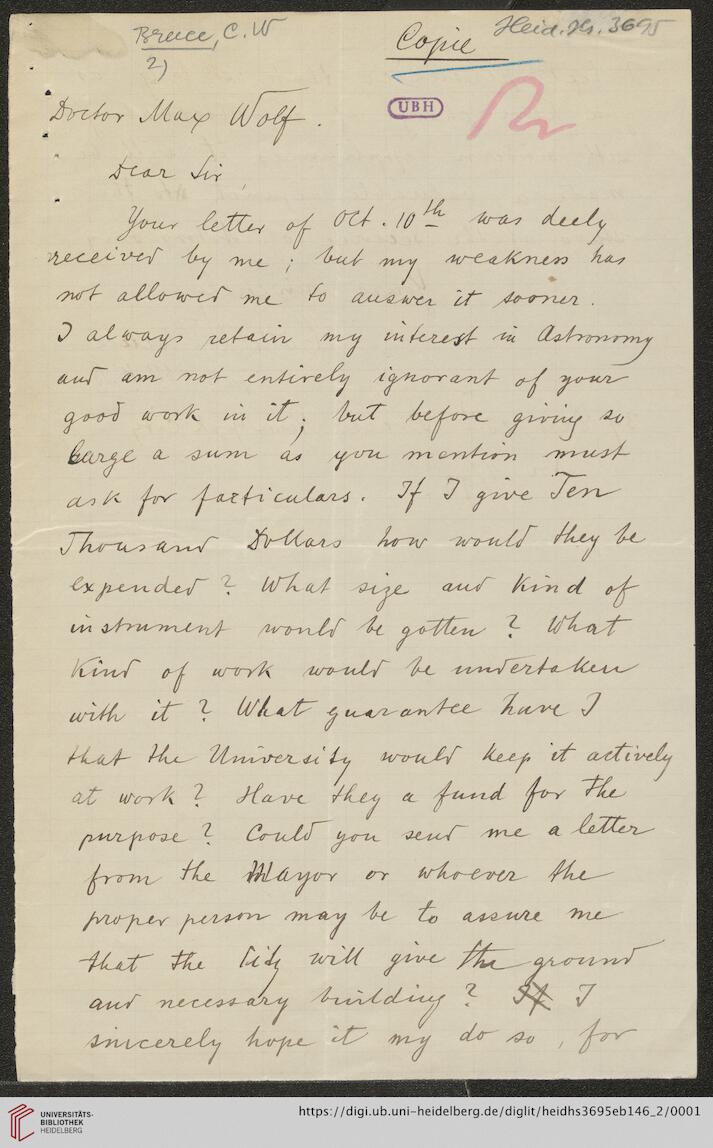 Bruce, C. W
2)
Copie
Heid. Hs. 3695
UBH
Doctor Max Wolf.
Dear Sir,
Your letter of Oct. 10th was deely
received by me; but my weakness has
not allowed me to answer it sooner.
I always retain my interest in Astronomy
and am not entirely ignorant of your
good work in it; but before giving so
large a sum as you mention must
ask for particulars. If I give Ten
Thousand Dollars how would they be
expended? What size and kind of
instrument would be gotten? What
kind of work would be undertaken
with it? What guarantee have I
that the University would keep it actively
at work? Have they a fund for the
purpose? Could you send me a letter
from the Mayor or whoever the
proper person may be to assure me
that the City will give the ground
and necessary building? I
sincerely hope it my do so, for
UNIVERSITÄTS-
BIBLIOTHEK
HEIDELBERG
https://digi.ub.uni-heidelberg.de/diglit/heidhs3695eb146_2/0001